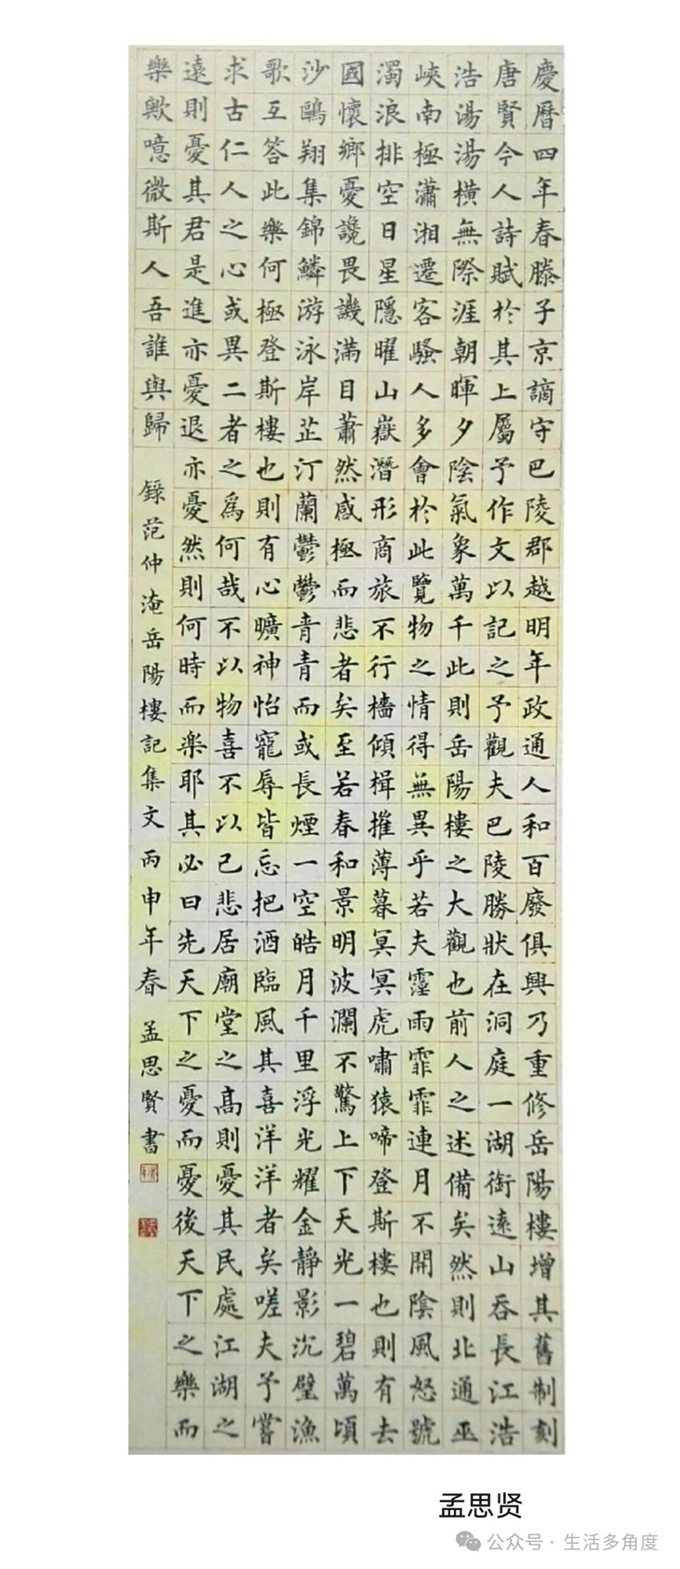 慶曆四年春滕子京謫守巴陵郡越明年政通人和百廢俱興乃重修岳陽樓增其舊制刻
唐賢今人詩賦於其上屬予作文以記之予觀夫巴陵勝狀在洞庭一湖銜遠山吞長江浩
浩湯湯橫無際涯朝暉夕陰氣象萬千此則岳陽樓之大觀也前人之述備矣然則北通巫
峽南極瀟湘遷客騷人多會於此覽物之情得無異乎若夫霪雨霏霏連月不開陰風怒號
濁浪排空日星隱曜山嶽潛形商旅不行檣傾楫摧薄暮冥冥虎嘯猿啼登斯樓也則有去
國懷鄉憂讒畏譏滿目蕭然感極而悲者矣至若春和景明波瀾不驚上下天光一碧萬頃
沙鷗翔集錦鱗游泳岸芷汀蘭鬱鬱青青而或長煙一空皓月千里浮光耀金靜影沉璧漁
歌互答此樂何極登斯樓也則有心曠神怡寵辱皆忘把酒臨風其喜洋洋者矣嗟夫予嘗
求古仁人之心或異二者之爲何哉不以物喜不以己悲居廟堂之高則憂其民處江湖之
遠則憂其君是進亦憂退亦憂然則何時而樂耶其必曰先天下之憂而憂後天下之樂而
樂歟噫微斯人吾誰與歸 錄范仲淹岳陽樓記集文 丙申年春 孟思賢書
孟思贤
公众号·生活多角度